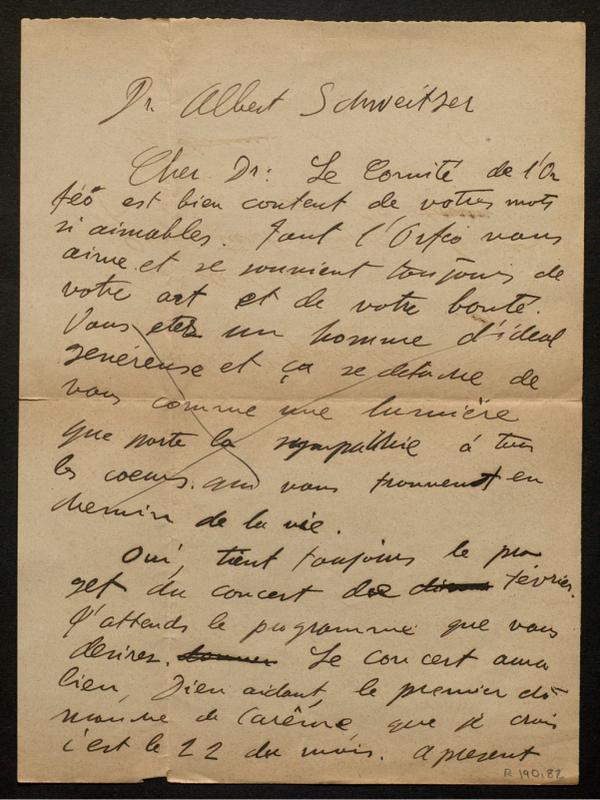 Dr Albert Schweitzer
Cher Dr: Le Comité de l'Or
féo est bien content de votres mots
si aimables. Tout l'Orféo vous
aime et se souvient toujours de
votre art et de votre bonté.
Vous etez un homme d'ideal
genéreuse et ça se detache de
vous comme une lumnière
que porte la sympathie à tous
les coeurs qui vous trouvent en
chemin de la vie.
Oui, tient toujours le pro
get du concert de février.
J'attends le programme que vous
desirez. Le concert aura
lieu, Dieu aidant, le premier di
manche de Carême que je crois
c'est le 22 du mois. A present
R 190.82